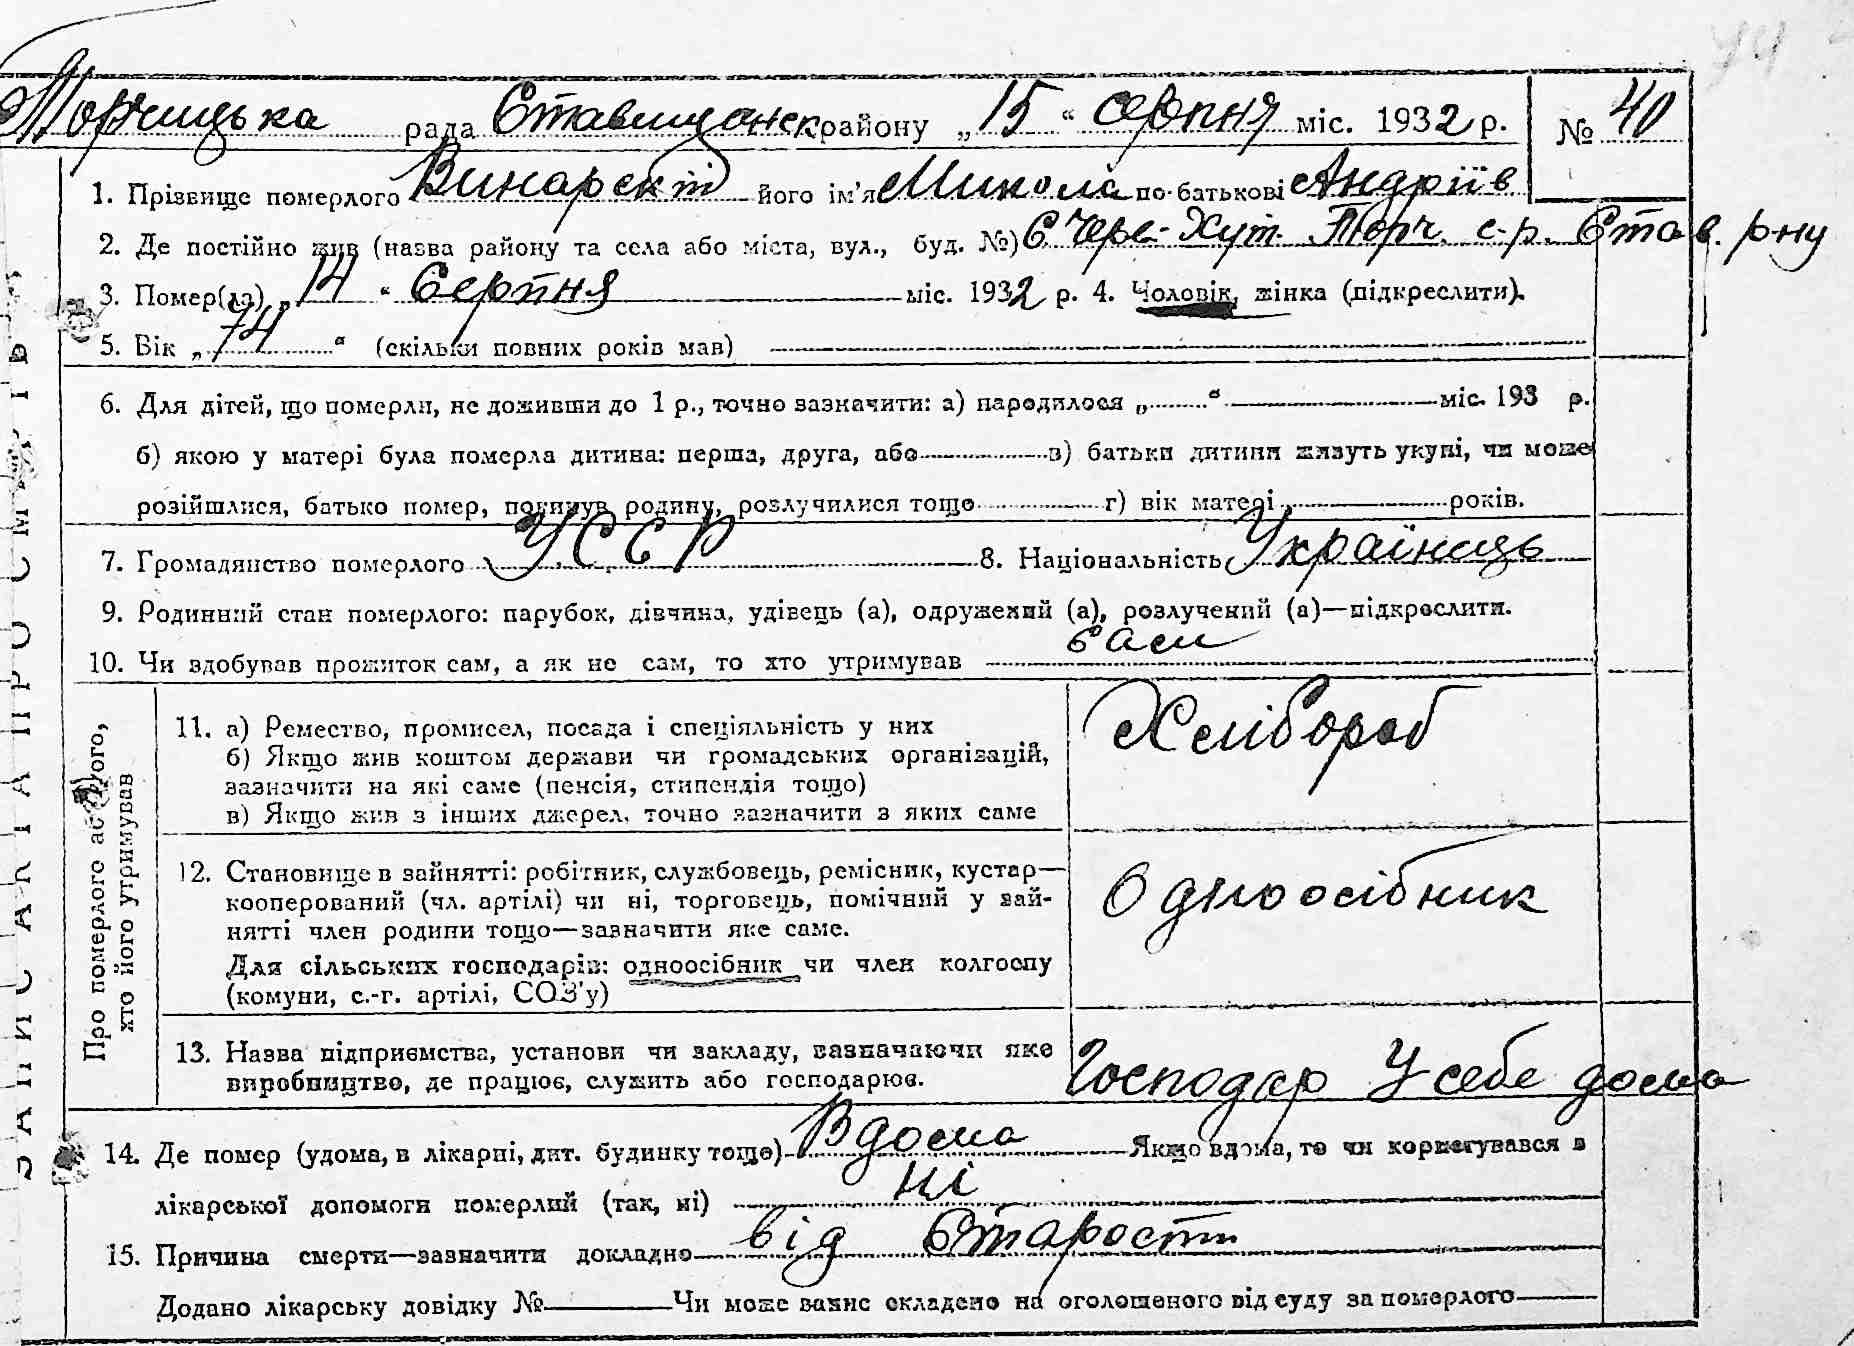 Торчицька рада Ставищанськ району „15“ серпня міс. 1932 р. № 40
1. Прізвище померлого Винарскій його ім'я Микола по-батькові Андріїв
2. Де постійно жив (назва району та села або міста, вул., буд. №) С Чере-Хут. Торч. с-р. Став. р-ну
3. Помер(ла) „14“ Серпня міс. 1932 р. 4. Чоловік, жінка (підкреслити).
5. Вік „74“ (скільки повних років мав)
6. Для дітей, що померли, не доживши до 1 р., точно зазначити: а) народилося „ “ міс. 193 р.
б) якою у матері була померла дитина: перша, друга, або в) батьки дитини живуть укупі, чи може
розійшлися, батько помер, покинув родину, розлучилися тощо г) вік матері років.
7. Громадянство померлого УССР 8. Національність Українець
9. Родинний стан померлого: парубок, дівчина, удівець (а), одружений (а), розлучений (а)—підкреслити.
10. Чи здобував прожиток сам, а як не сам, то хто утримував сам
ЗАПИС АКТА ПРО СМЕРТЬ
Про померлого або того,
хто його утримував
11. а) Ремество, промисел, посада і спеціяльність у них
б) Якщо жив коштом держави чи громадських організацій,
зазначити на які саме (пенсія, стипендія тощо)
в) Якщо жив з інших джерел, точно зазначити з яких саме
Хлібороб
12. Становище в зайнятті: робітник, службовець, ремісник, кустар—
кооперований (чл. артілі) чи ні, торговець, помічний у зай-
нятті член родини тощо—зазначити яке саме.
Для сільських господарів: одноосібник чи член колгоспу
(комуни, с.-г. артілі, СОЗ'у)
Одноосібник
13. Назва підприємства, установи чи закладу, зазначаючи яке
виробництво, де працює, служить або господарює.
Господар У себе дома
14. Де помер (удома, в лікарні, дит. будинку тощо) Вдома Якщо вдома, то чи користувався з
лікарської допомоги померлий (так, ні) ні
15. Причина смерти—зазначити докладно від Старости
Додано лікарську довідку № Чи може запис складено на оголошеного від суду за померлого